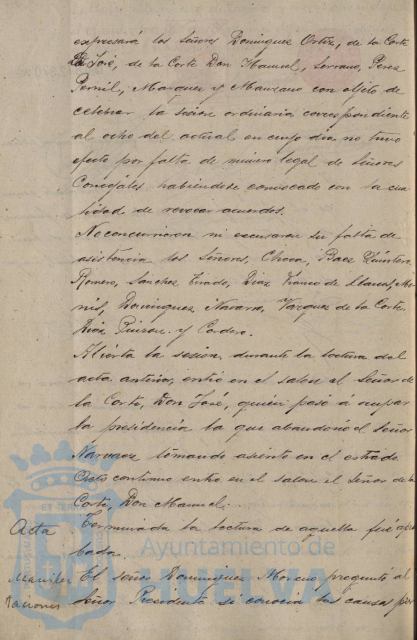 expresará los Señores Dominguez Ortiz, de la Corte
Don José, de la Corte Don Manuel, Serrano, Perez
Pernil, Marquez y Manzano con objeto de
celebrar la sesion ordinaria correspondiente
al ocho del actual en cuyo dia no tuvo
efecto por falta de número legal de Señores
Concejales habiendose convocado con la cua
lidad de revocar acuerdos.
No concurrieron ni escusaron su falta de
asistencia los Señores, Checa, Baez Quintero
Romero, Sanchez Tirado, Diaz Franco de Llanos,
Dominguez Navarro, Vazquez de la Corte
Diaz Quirós y Cordero.
Abierta la sesion, durante la lectura del
acta anterior, entró en el salon el Señor de
la Corte, Don José, quien pasó á ocupar
la presidencia la que abandonó el Señor
Narvaez tomando asiento en el estrado
Acto continuo entró en el salon el Señor de la
Corte, Don Manuel.
Acta Terminada la lectura de aquella fué apro
bada.
Manifes El señor Dominguez Moreno preguntó al
taciones Señor Presidente si conocia las causas por
Ayuntamiento de
HUELVA